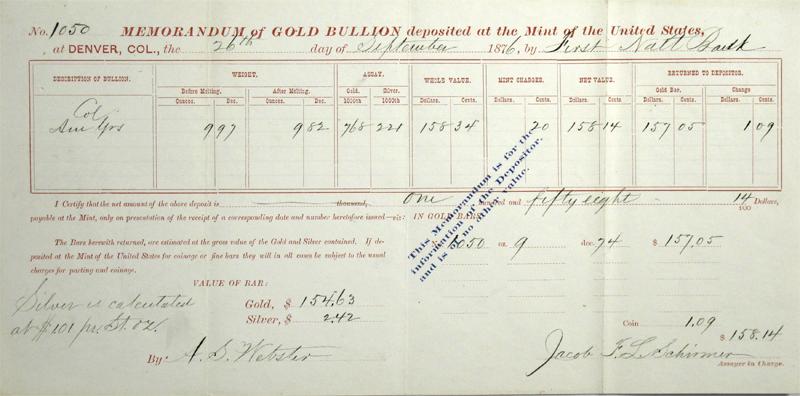 No. 1050 MEMORANDUM of GOLD BULLION deposited at the Mint of the United States,
at DENVER, COL., the 26th day of September 1876, by First Natl Bank
DESCRIPTION OF BULLION. WEIGHT. ASSAY. WHOLE VALUE. MINT CHARGES. NET VALUE. RETURNED TO DEPOSITOR.
Before Melting. After Melting. Gold. Silver. Gold Bar. Change
Ounces. Dec. Ounces. Dec. 1000th 1000th Dollars. Cents. Dollars. Cents. Dollars. Cents. Dollars. Cents. Dollars. Cents.
Col
9 97 9 82 768 221 158 34 20 158 14 157 05 1 09
I Certify that the net amount of the above deposit is thousand, One hundred and fifty eight 14/100 Dollars,
payable at the Mint, only on presentation of the receipt of a corresponding date and number heretofore issued—viz: IN GOLD BARS
The Bars herewith returned, are estimated at the gross value of the Gold and Silver contained. If de-
posited at the Mint of the United States for coinage or fine bars they will in all cases be subject to the usual
charges for parting and coinage.
1050 oz. 9 dec. 74 $ 157.05
This Memorandum is for the
information of the Depositor.
and is of no other value.
VALUE OF BAR:
Gold, $ 154.63
Silver, $ 2.42
Silver is calculated
at $1.01 pr. St. oz.
Coin 1.09
$ 158.14
By A. S. Webster
Jacob F. L. Schirmer
Assayer in Charge.